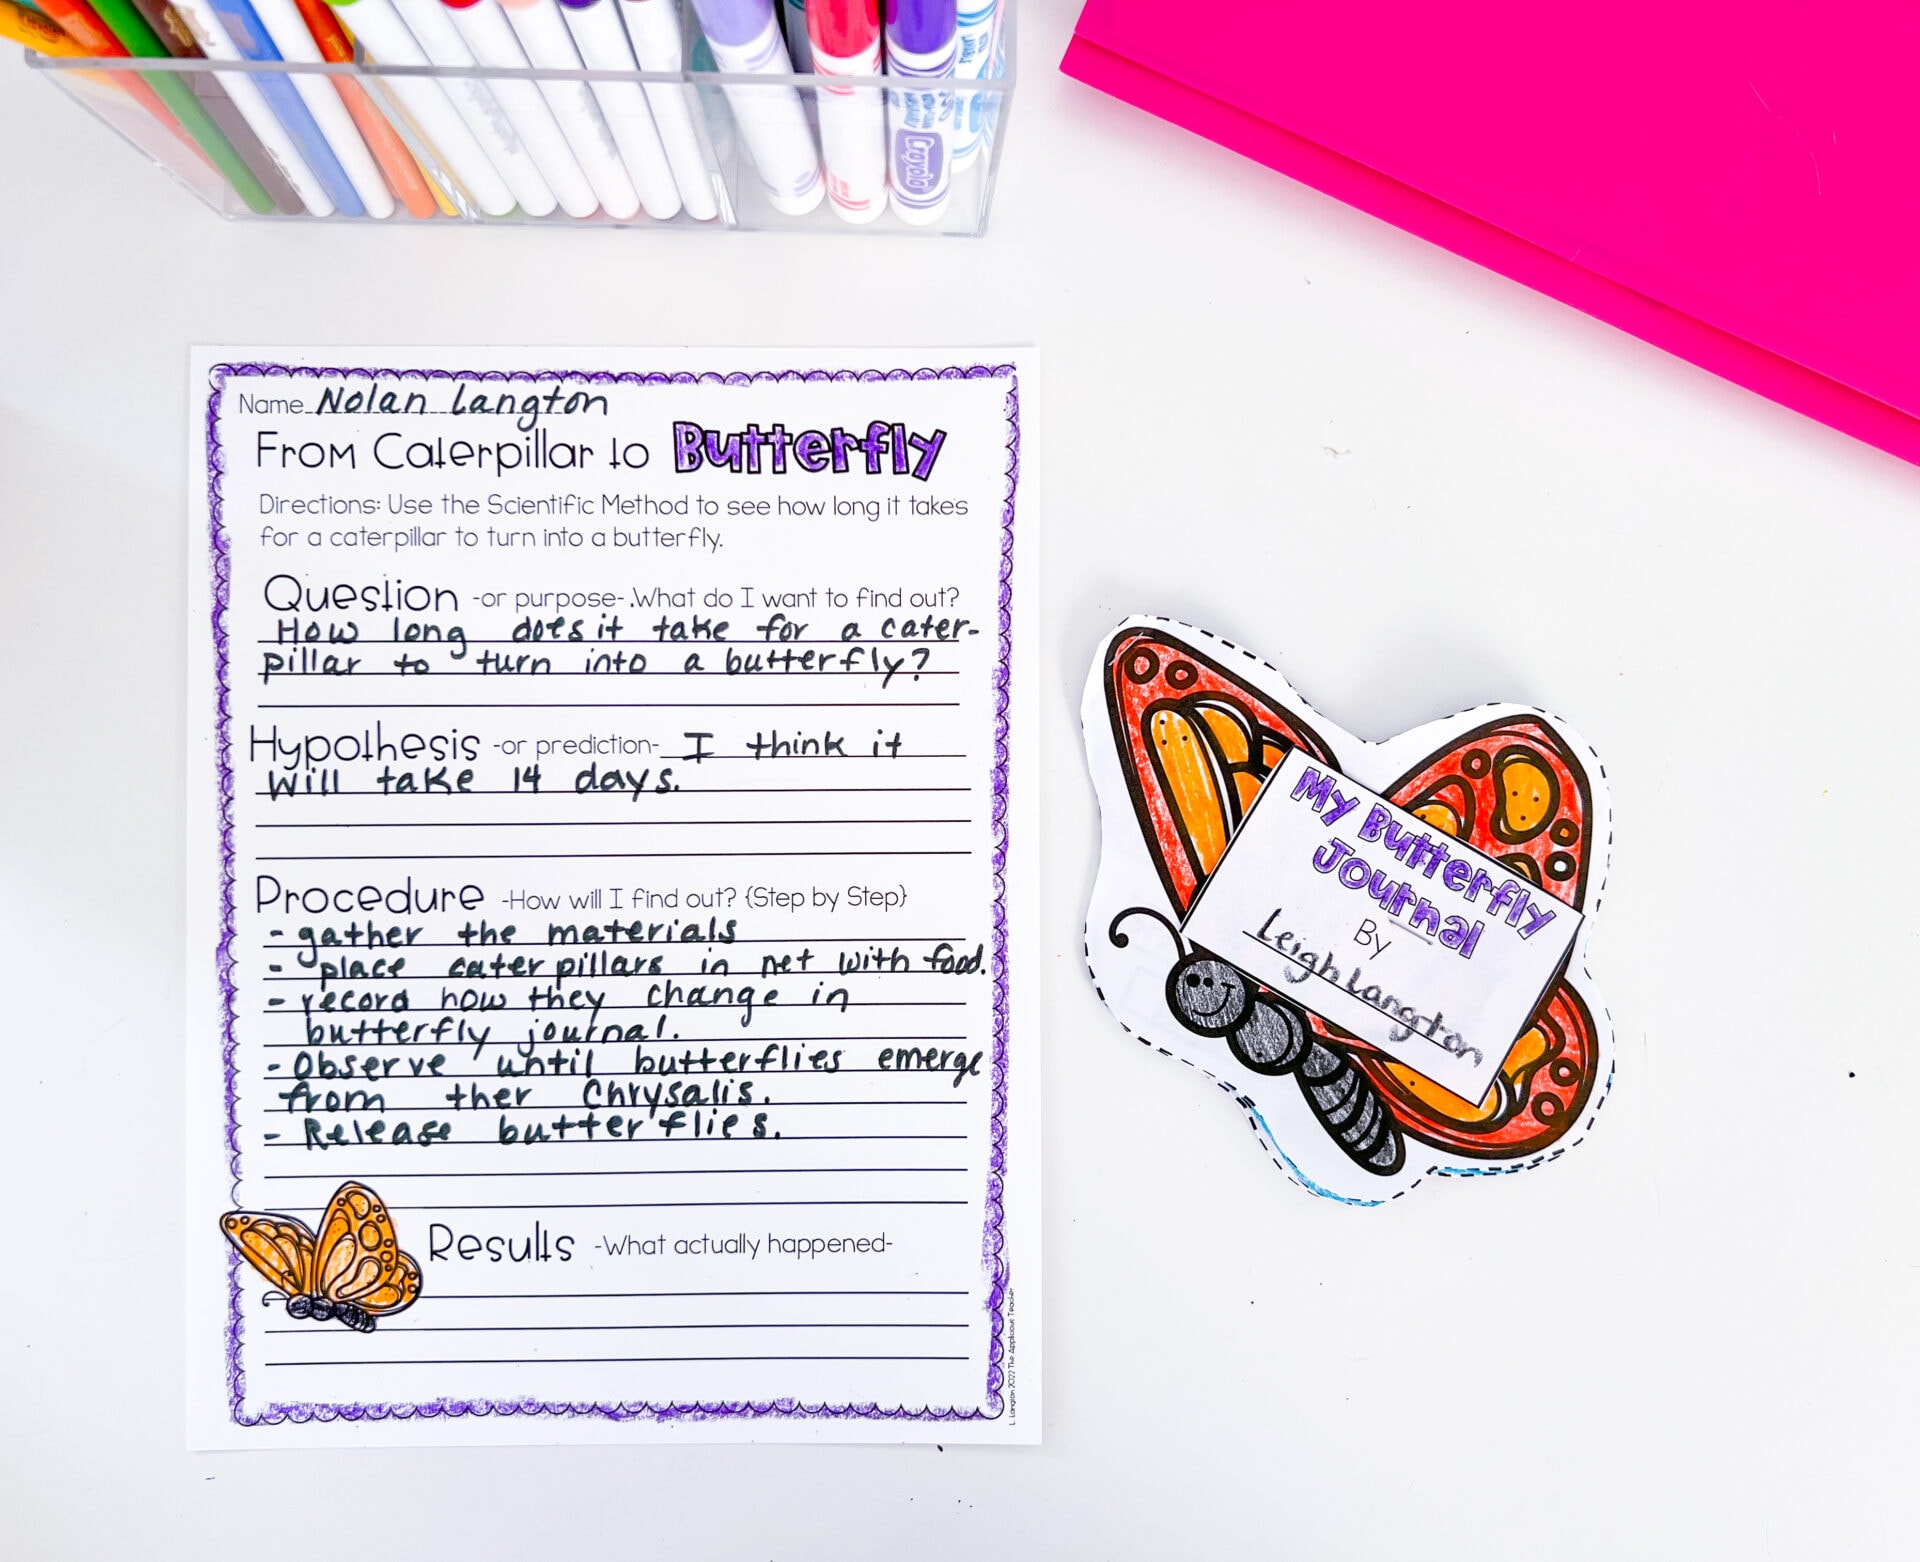 Crayola
Name Nolan Langton
From Caterpillar to Butterfly
Directions: Use the Scientific Method to see how long it takes
for a caterpillar to turn into a butterfly.
Question -or purpose-.What do I want to find out?
How long does it take for a cater-
pillar to turn into a butterfly?
Hypothesis -or prediction- I think it
will take 14 days.
Procedure -How will I find out? {Step by Step}
- gather the materials
- place caterpillars in net with food.
- record how they change in
butterfly journal.
- Observe until butterflies emerge
from ther Chrysalis.
- Release butterflies.
Results -What actually happened-
L. Langton 2022 The Applicious Teacher
My Butterfly
Journal
By
Leigh Langton